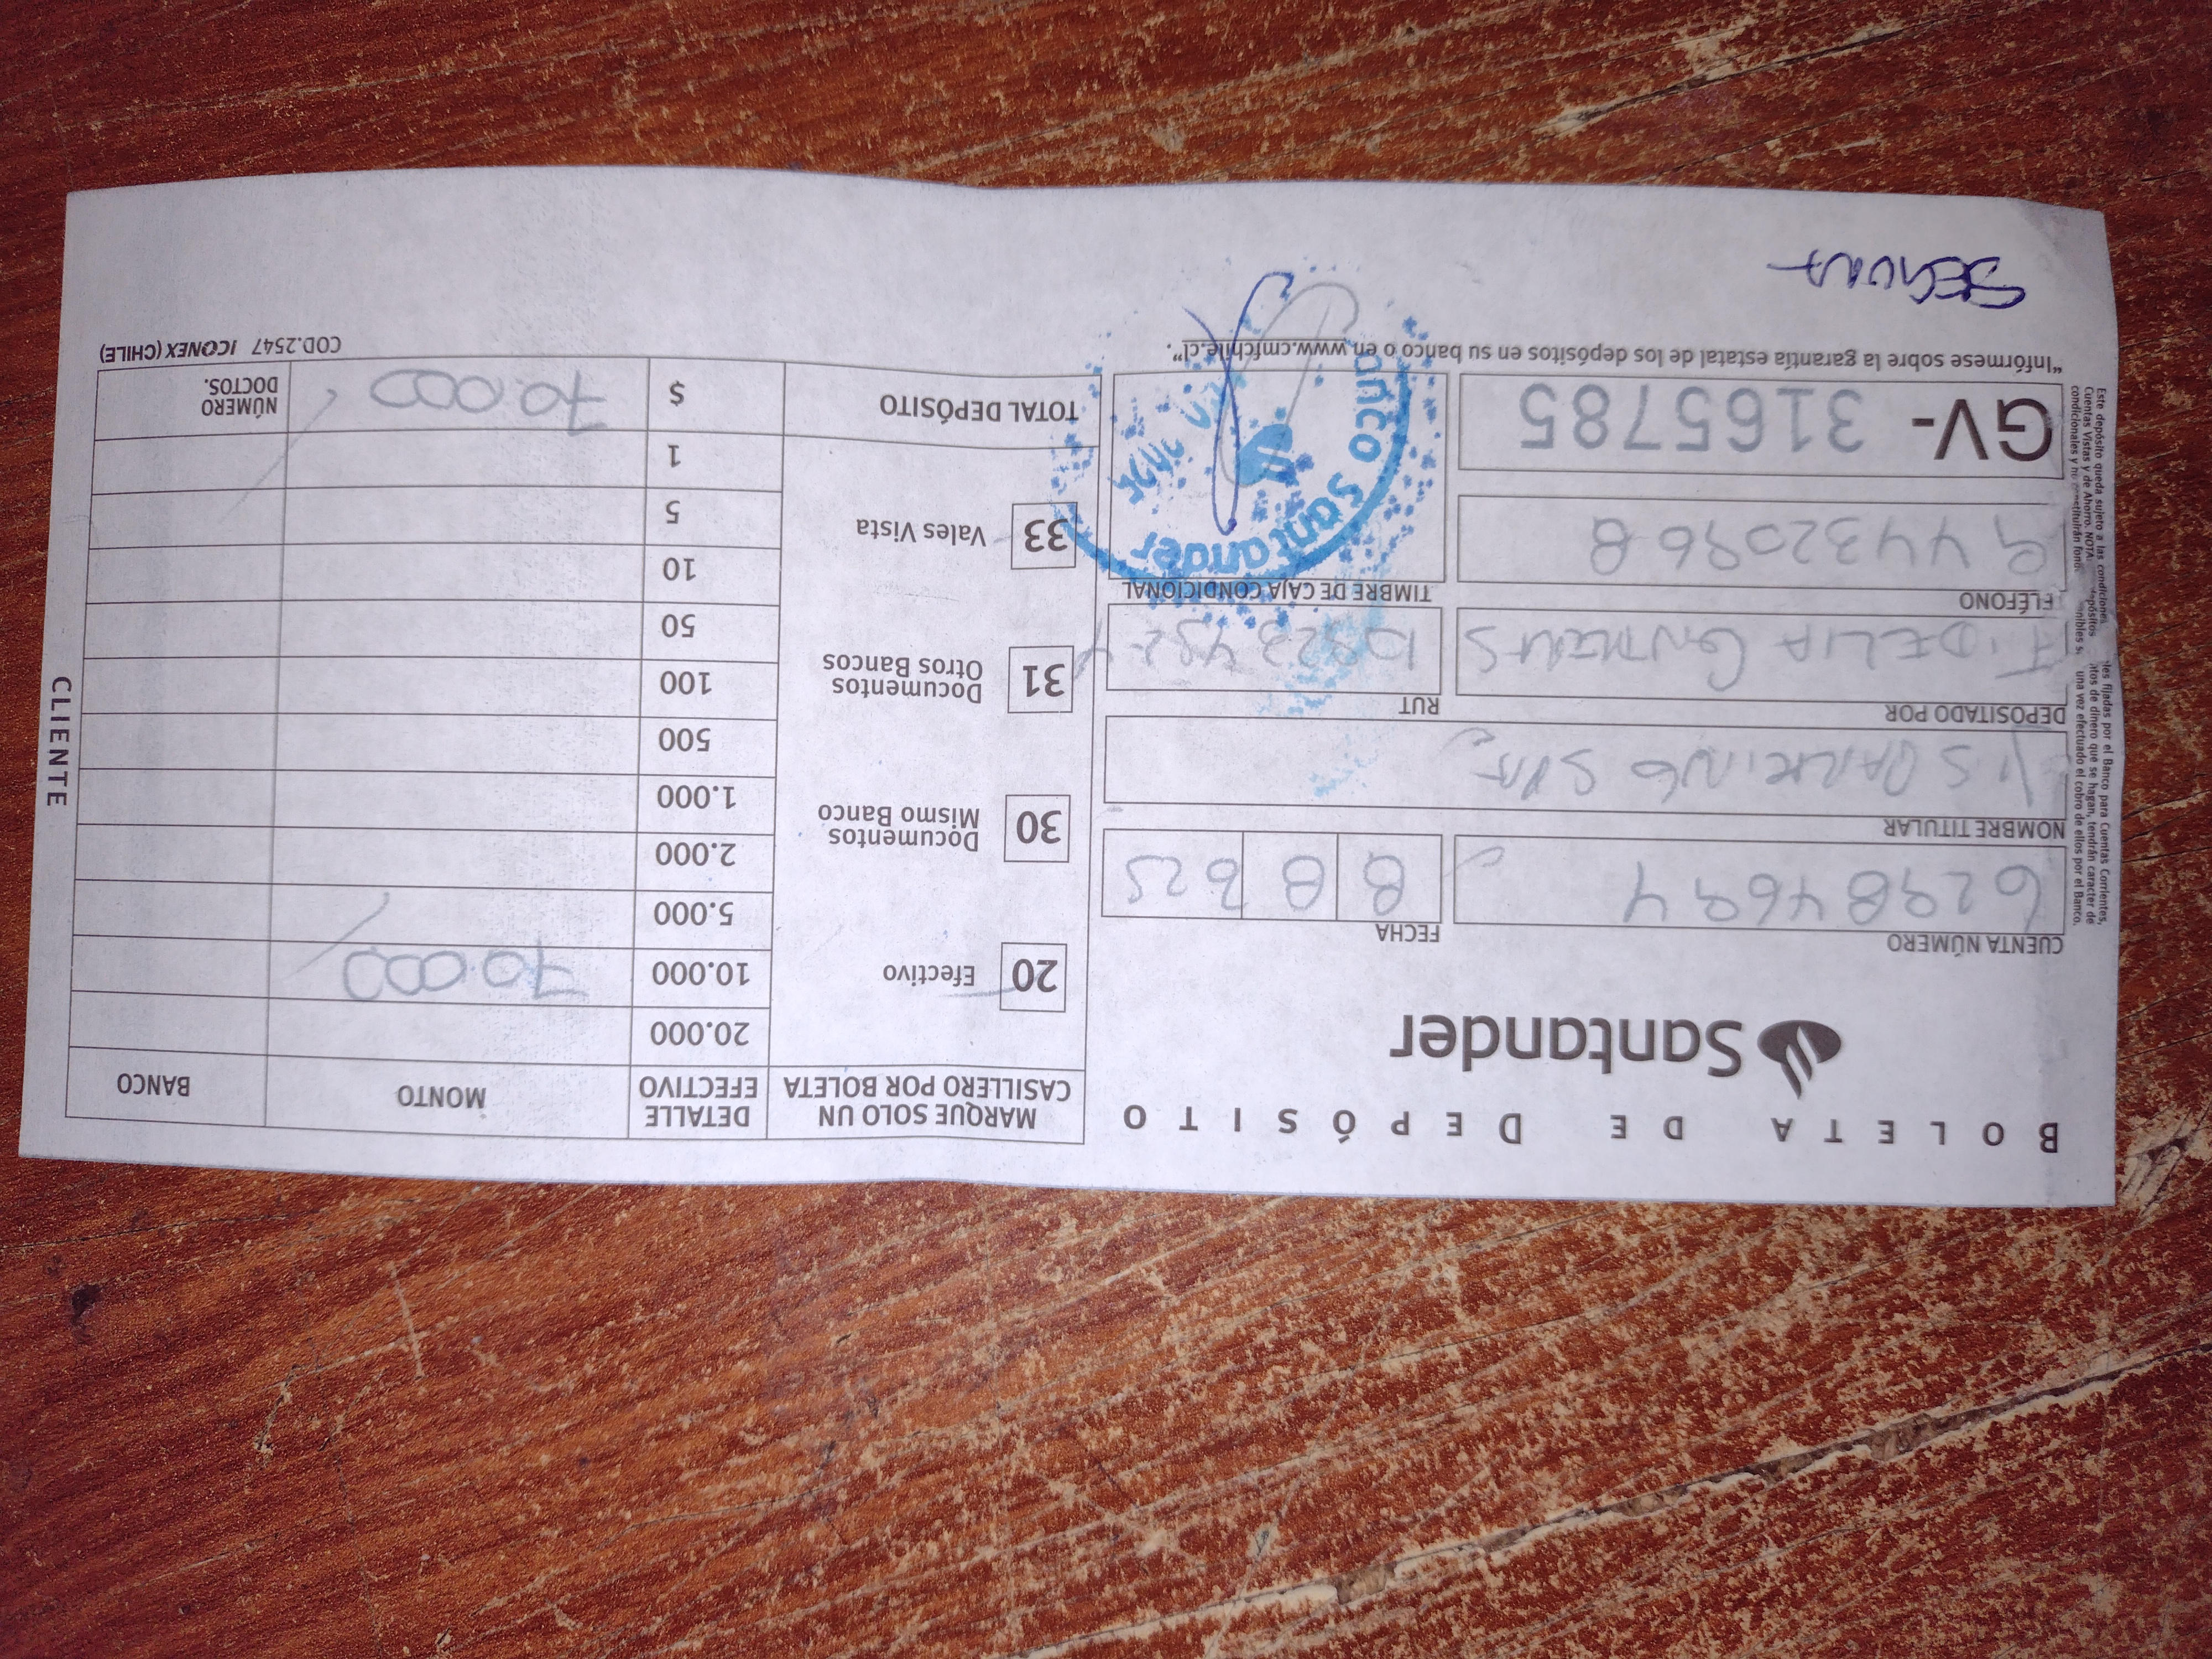 BOLETA DE DEPÓSITO
Santander
CUENTA NÚMERO
FECHA
8 8
NOMBRE TITULAR
PARKING SPA
DEPOSITADO POR
RUT
FIDELIA
TELÉFONO
TIMBRE DE CAJA CONDICIONAL
944320968
GV- 3165785
Banco Santander
"Infórmese sobre la garantía estatal de los depósitos en su banco o en www.cmfchile.cl".
MARQUE SOLO UN CASILLERO POR BOLETA
DETALLE EFECTIVO
MONTO
BANCO
20 Efectivo
30 Documentos Mismo Banco
31 Documentos Otros Bancos
33 Vales Vista
20.000
10.000 70.000
5.000
2.000
1.000
500
100
50
10
5
1
TOTAL DEPÓSITO $ 70.000
NÚMERO DOCTOS.
COD.2547 ICONEX (CHILE)
CLIENTE
Este depósito queda sujeto a las condiciones
fijadas por el Banco para Cuentas Corrientes,
Cuentas Vistas y de Ahorro. NOTA:
de dinero que se hagan, tendrán carácter de
condicionales y no constituirán
una vez efectuado el cobro de ellos por el Banco.